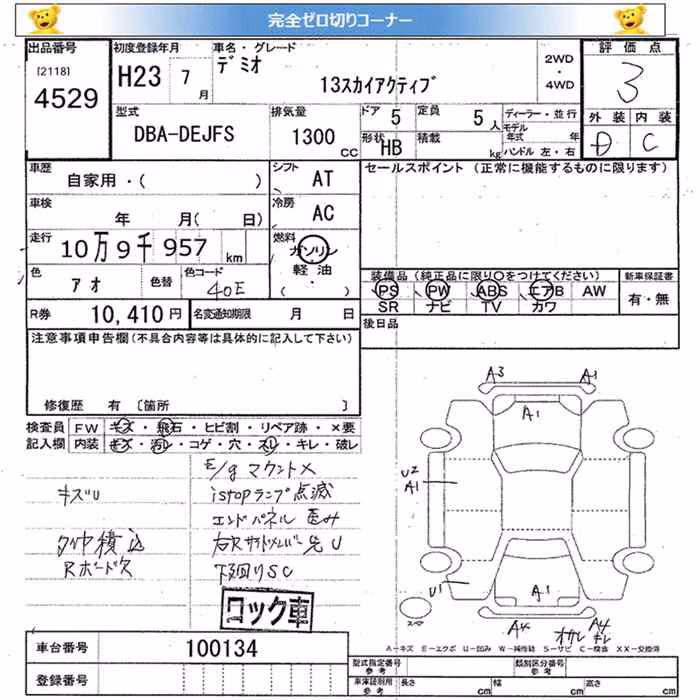 完全ゼロ切りコーナー
出品番号
[2118]
4529
初度登録年月
H23 7月
車名・グレード
デミオ
13スカイアクティブ
2WD
・
4WD
評価点
3
外装 内装
D C
型式
DBA-DEJFS
排気量
1300 CC
ドア 5
定員 5人
形状 HB
積載 kg
ディーラー・並行
モデル年式 年
ハンドル 左・右
車歴
自家用・( )
シフト AT
車検
年 月( 日)
冷房 AC
走行
10万9千957 km
燃料
ガソリン
・
軽油
・
色 アオ
色替
色コード 40E
R券 10,410円
名変通知期限 月 日
セールスポイント (正常に機能するものに限ります)
装備品 (純正品に限り○をつけてください)
PS PW ABS エアB AW
SR ナビ TV カワ
新車保証書
有・無
後日品
注意事項申告欄(不具合内容等は具体的に記入して下さい)
修復歴 有 〔箇所 〕
検査員記入欄
FW キズ・飛石・ヒビ割・リペア跡・×要
内装 キズ・汚レ・コゲ・穴・スレ・キレ・破レ
E/g マウント×
キズU
istopランプ点滅
エンドパネル 歪み
タイヤ積込
右Rサイドメンバー先U
Rボード欠
下廻りSC
ロック車
A3 A1
A1
U2
A1
U1
A1
スペア
A4
オサレ
A4
キレ
A-キズ E-エクボ U-凹み W-補修跡 S-サビ C-腐食 XX-交換済
車台番号 100134
登録番号
型式指定番号 参考
類別区分番号 参考
車庫証明用 参考
長さ cm
幅 cm
高さ cm